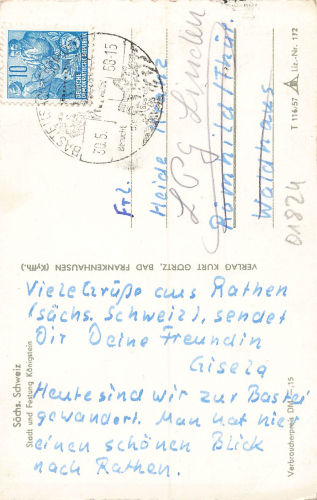 Viele Grüße aus Rathen
(sächs. Schweiz), sendet
Dir Deine Freundin
Gisela
Heute sind wir zur Bastei
gewandert. Man hat hier
einen schönen Blick
nach Rathen.
Sächs. Schweiz
Stadt und Festung Königstein
VERLAG KURT GÖRTZ, BAD FRANKENHAUSEN (Kyffh.)
Verbraucherpreis DM -,15
T 116/57
Liz.-Nr. 172
10
DEUTSCHE DEMOKRATISCHE REPUBLIK
30.5.58-15
Frl.
Heide
LPG Linden
Römhild/Thür.
Waldhaus
01824